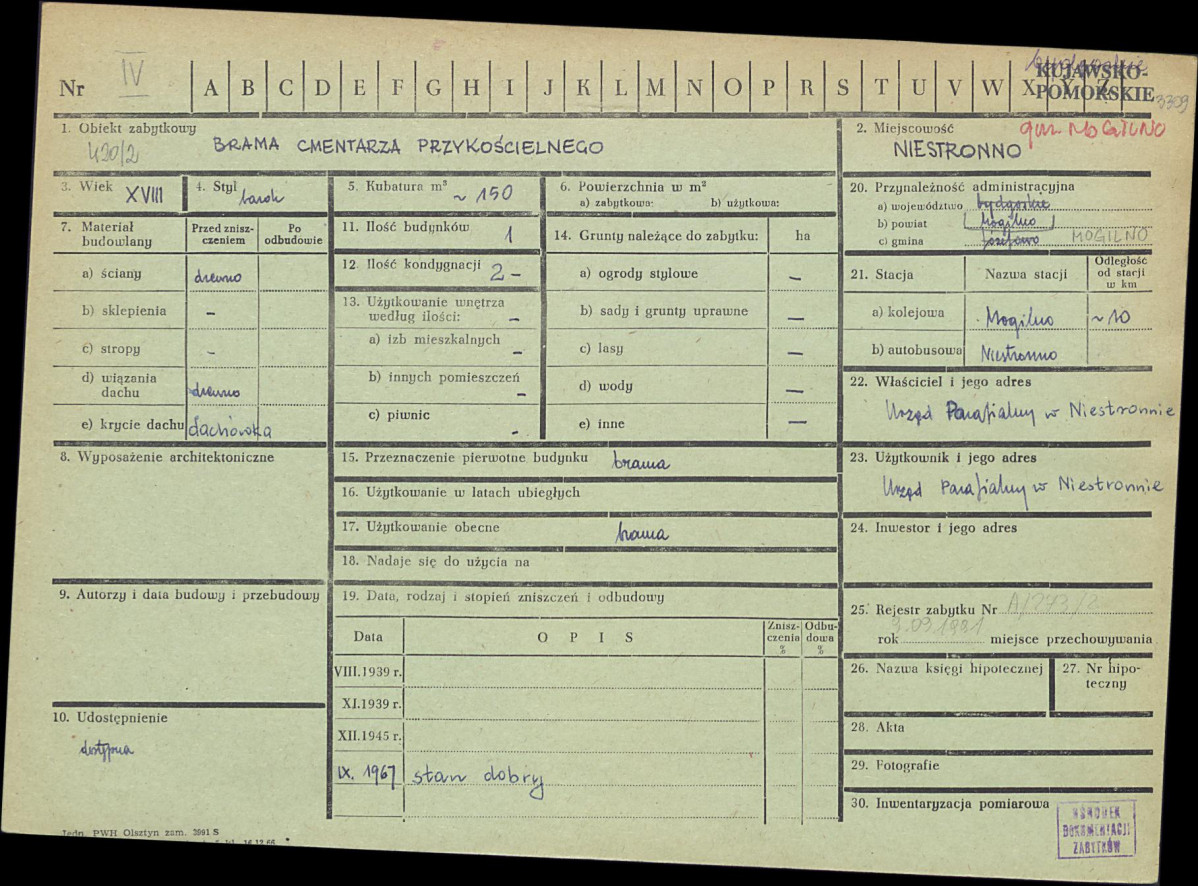 bydgoskie
Nr IV A B C D E F G H I J K L M N O P R S T U V W X Y Z
KUJAWSKO-
POMORSKIE 3309
1. Obiekt zabytkowy
420/2
BRAMA CMENTARZA PRZYKOŚCIELNEGO
2. Miejscowość
gm. MOGILNO
NIESTRONNO
3. Wiek XVIII
4. Styl barok
5. Kubatura m³ ~ 150
6. Powierzchnia w m²
a) zabytkowa: b) użytkowa:
7. Materiał budowlany
Przed zniszczeniem
Po odbudowie
a) ściany drewno
b) sklepienia –
c) stropy –
d) wiązania dachu drewno
e) krycie dachu dachówka
8. Wyposażenie architektoniczne
9. Autorzy i data budowy i przebudowy
10. Udostępnienie
dostępna
11. Ilość budynków 1
12. Ilość kondygnacji 2 –
13. Użytkowanie wnętrza
według ilości: –
a) izb mieszkalnych –
b) innych pomieszczeń –
c) piwnic –
14. Grunty należące do zabytku: ha
a) ogrody stylowe –
b) sady i grunty uprawne –
c) lasy –
d) wody –
e) inne –
15. Przeznaczenie pierwotne budynku brama
16. Użytkowanie w latach ubiegłych
17. Użytkowanie obecne brama
18. Nadaje się do użycia na
19. Data, rodzaj i stopień zniszczeń i odbudowy
Data OPIS Zniszczenia % Odbudowa %
VIII.1939 r.
XI.1939 r.
XII.1945 r.
IX. 1967 stan dobry
20. Przynależność administracyjna
a) województwo bydgoskie
b) powiat Mogilno
c) gmina Józefowo MOGILNO
21. Stacja Nazwa stacji Odległość od stacji w km
a) kolejowa Mogilno ~10
b) autobusowa Niestronno
22. Właściciel i jego adres
Urząd Parafialny w Niestronnie
23. Użytkownik i jego adres
Urząd Parafialny w Niestronnie
24. Inwestor i jego adres
25. Rejestr zabytku Nr A/273/2
rok 3.09.1991 miejsce przechowywania
26. Nazwa księgi hipotecznej
27. Nr hipoteczny
28. Akta
29. Fotografie
30. Inwentaryzacja pomiarowa
OŚRODEK
DOKUMENTACJI
ZABYTKÓW
Jedn. PWH Olsztyn zam. 3991 S